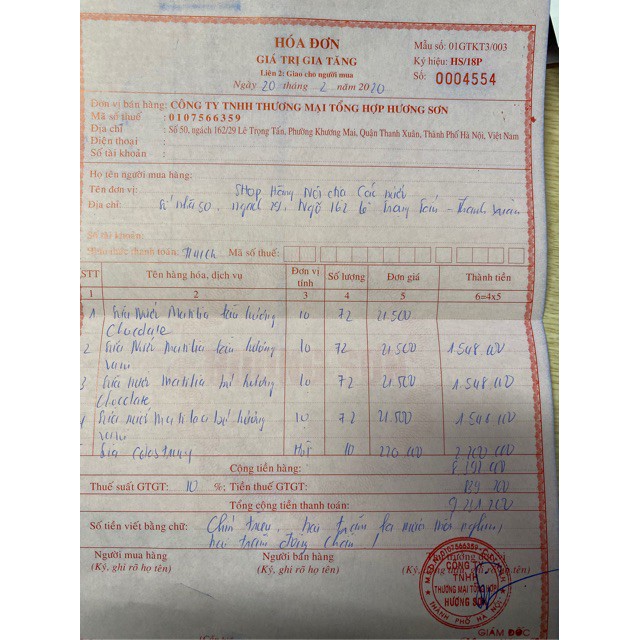 HÓA ĐƠN
GIÁ TRỊ GIA TĂNG
Liên 2: Giao cho người mua
Ngày 20 tháng 2 năm 2020
Mẫu số: 01GTKT3/003
Ký hiệu: HS/18P
Số: 0004554
Đơn vị bán hàng: CÔNG TY TNHH THƯƠNG MẠI TỔNG HỢP HƯƠNG SƠN
Mã số thuế : 0107566359
Địa chỉ : Số 50, ngách 162/29 Lê Trọng Tấn, Phường Khương Mai, Quận Thanh Xuân, Thành Phố Hà Nội, Việt Nam
Điện thoại :
Số tài khoản :
Họ tên người mua hàng:
Tên đơn vị: SHOP Hàng Nội cho
Địa chỉ: Số nhà 50, ngách 29, Ngõ 162 Lê Trọng Tấn - Thanh Xuân
Số tài khoản:
Hình thức thanh toán: Mã số thuế:
STT Tên hàng hóa, dịch vụ Đơn vị tính Số lượng Đơn giá Thành tiền
1 2 3 4 5 6=4x5
1 Sữa nước hương 10 72 21.500
Chocolate
2 Sữa Nước hương 10 72 21.500 1.548.000
3 Sữa nước hương 10 72 21.500 1.548.000
Chocolate
Sữa nước hương 10 72 21.500 1.548.000
Sữa Colostrum 10 220 000 2 200 000
Cộng tiền hàng: 8 392 000
Thuế suất GTGT: 10 %; Tiền thuế GTGT: 839 200
Tổng cộng tiền thanh toán: 9 231 200
Số tiền viết bằng chữ: Chín triệu, hai trăm ba mươi mốt nghìn,
hai trăm đồng chẵn !
Người mua hàng Người bán hàng
(Ký, ghi rõ họ tên) (Ký, ghi rõ họ tên)
CÔNG TY
TNHH
THƯƠNG MẠI TỔNG HỢP
HƯƠNG SƠN
GIÁM ĐỐC